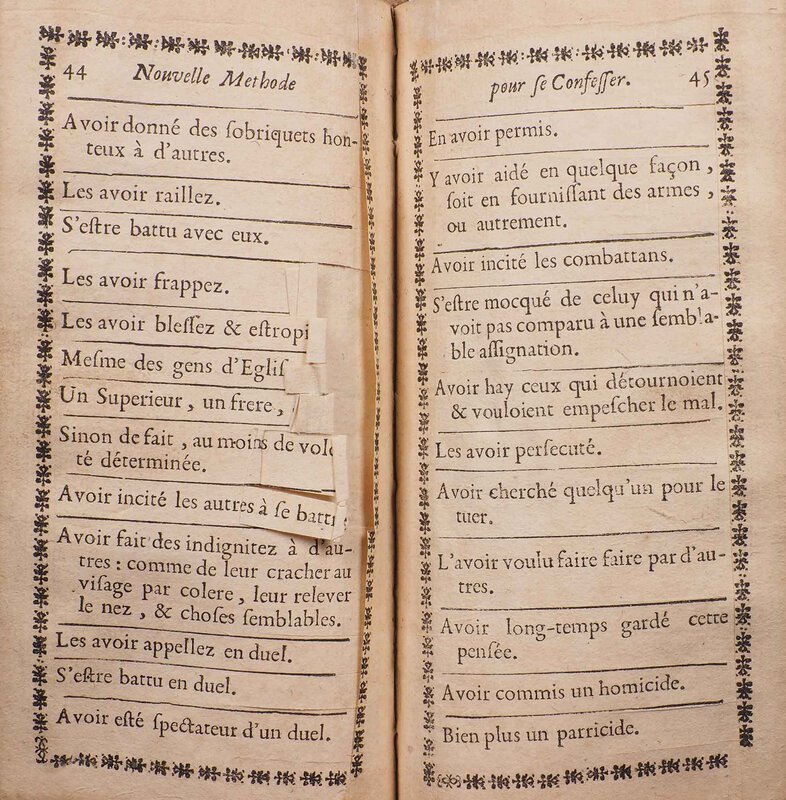 44 Nouvelle Methode
Avoir donné des ſobriquets hon-
teux à d'autres.
Les avoir raillez.
S'eſtre battu avec eux.
Les avoir frappez.
Les avoir bleſſez & eſtropi
Meſme des gens d'Egliſ
Un Superieur, un frere,
Sinon de fait, au moins de volo
té déterminée.
Avoir incité les autres à ſe battr
Avoir fait des indignitez à d'au-
tres : comme de leur cracher au
viſage par colere, leur relever
le nez, & choſes ſemblables.
Les avoir appellez en duel.
S'eſtre battu en duel.
Avoir eſté ſpectateur d'un duel.
pour ſe Confeſſer. 45
En avoir permis.
Y avoir aidé en quelque façon,
ſoit en fourniſſant des armes,
ou autrement.
Avoir incité les combattans.
S'eſtre mocqué de celuy qui n'a-
voit pas comparu à une ſembla-
ble aſſignation.
Avoir hay ceux qui détournoient
& vouloient empeſcher le mal.
Les avoir perſecuté.
Avoir cherché quelqu'un pour le
tuer.
L'avoir voulu faire faire par d'au-
tres.
Avoir long-temps gardé cette
penſée.
Avoir commis un homicide.
Bien plus un parricide.